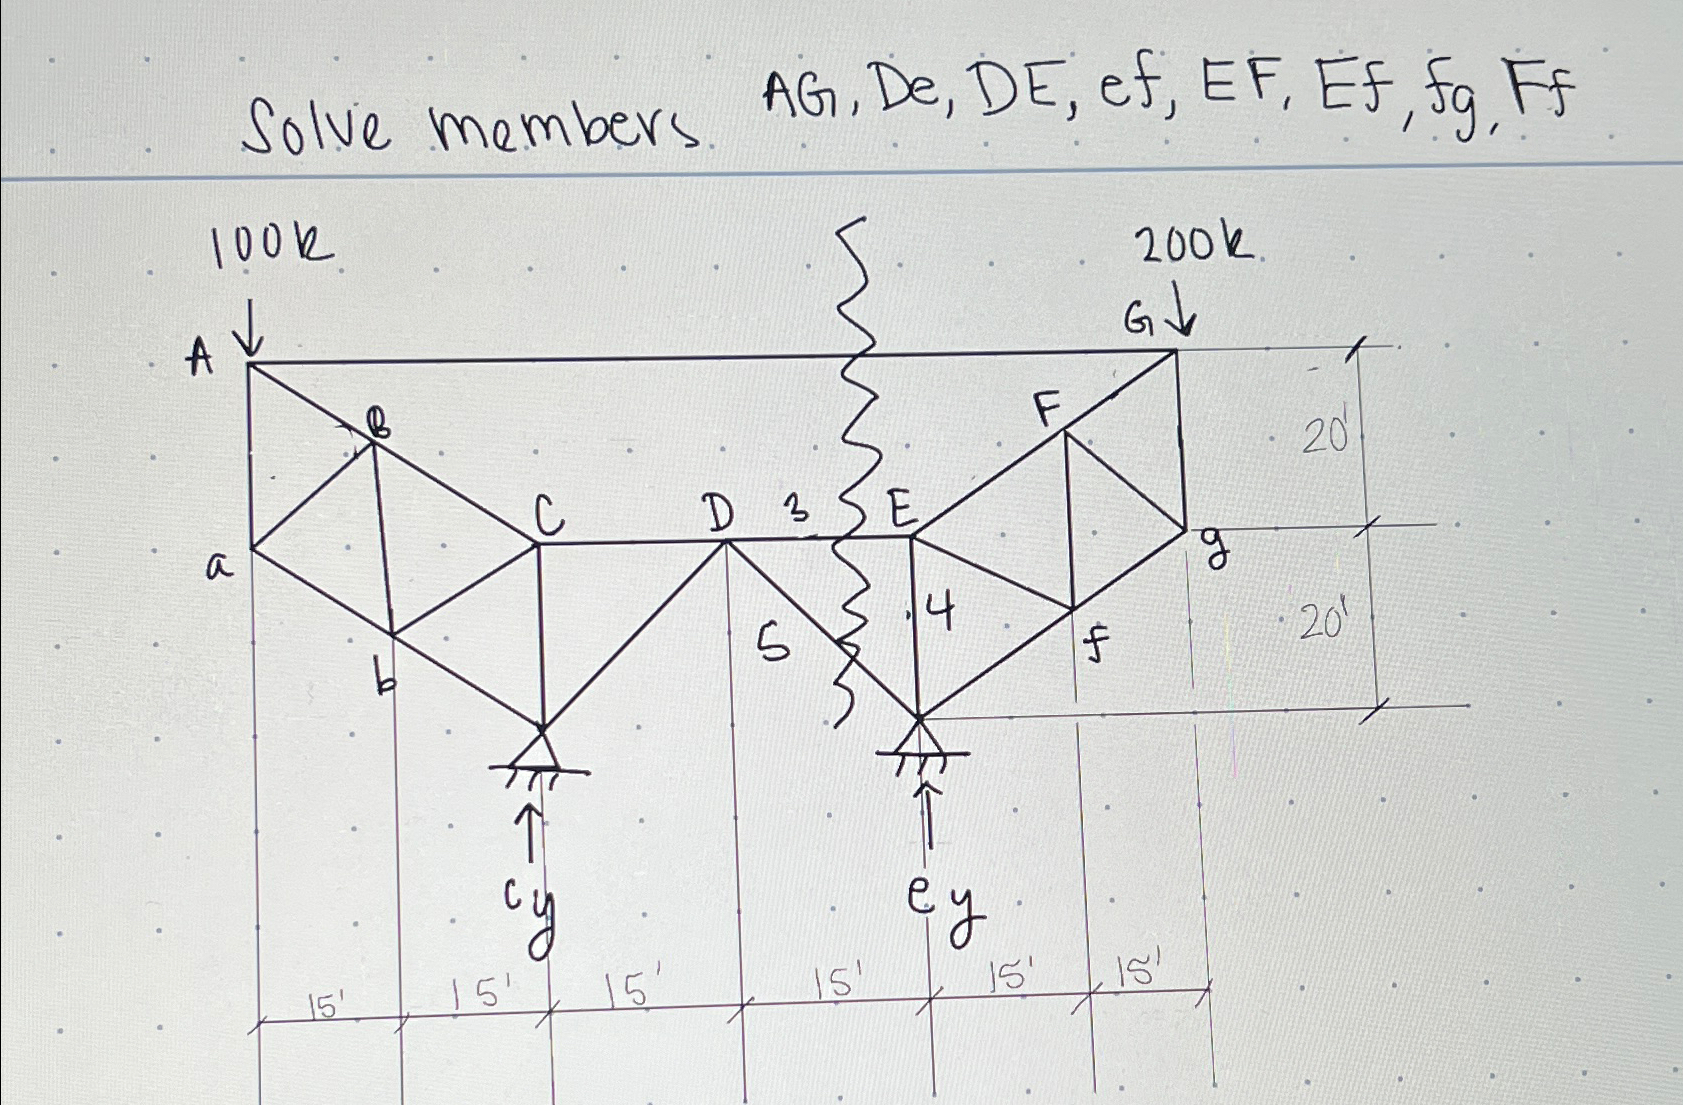 Solve members AG, De, DE, ef, EF, Ef, fg, Ff
100k
200k.
G
A
20'
F
B
C
D
3
E
a
g
5
4
20'
f
b
cy
ey
15'
15'
15'
15'
15'
15'